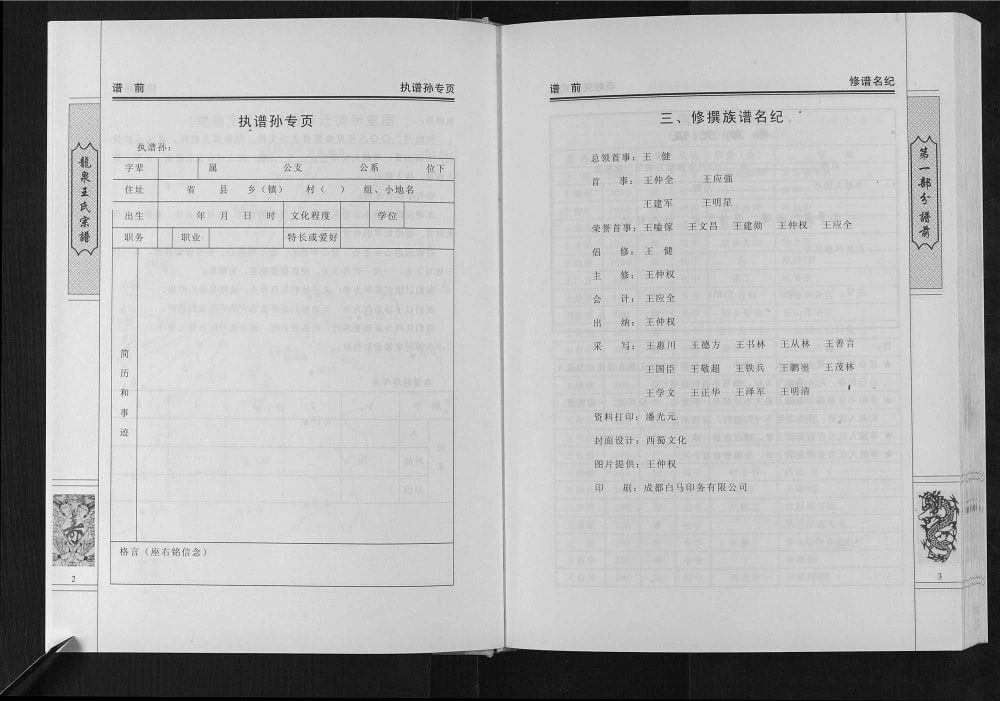 谱 前 执谱孙专页
龍泉王氏宗譜
执谱孙专页
执谱孙:
字辈 属 公支 公系 位下
住址 省 县 乡（镇） 村（ ） 组、小地名
出生 年 月 日 时 文化程度 学位
职务 职业 特长或爱好
简历和事迹
格言（座右铭信念）
2
谱 前 修谱名纪
第一部分 譜前
三、修撰族谱名纪
总领首事：王 健
首 事：王仲全 王应强
王建军 王明星
荣誉首事：王嗑傢 王文昌 王建勋 王仲权 王应全
倡 修：王 健
主 修：王仲权
会 计：王应全
出 纳：王仲权
采 写：王惠川 王德方 王书林 王丛林 王善言
王国臣 王敬超 王铁兵 王鹏 王茂林
王学文 王正华 王泽军 王明清
资料打印：潘光元
封面设计：西蜀文化
图片提供：王仲权
印 刷：成都白马印务有限公司
3